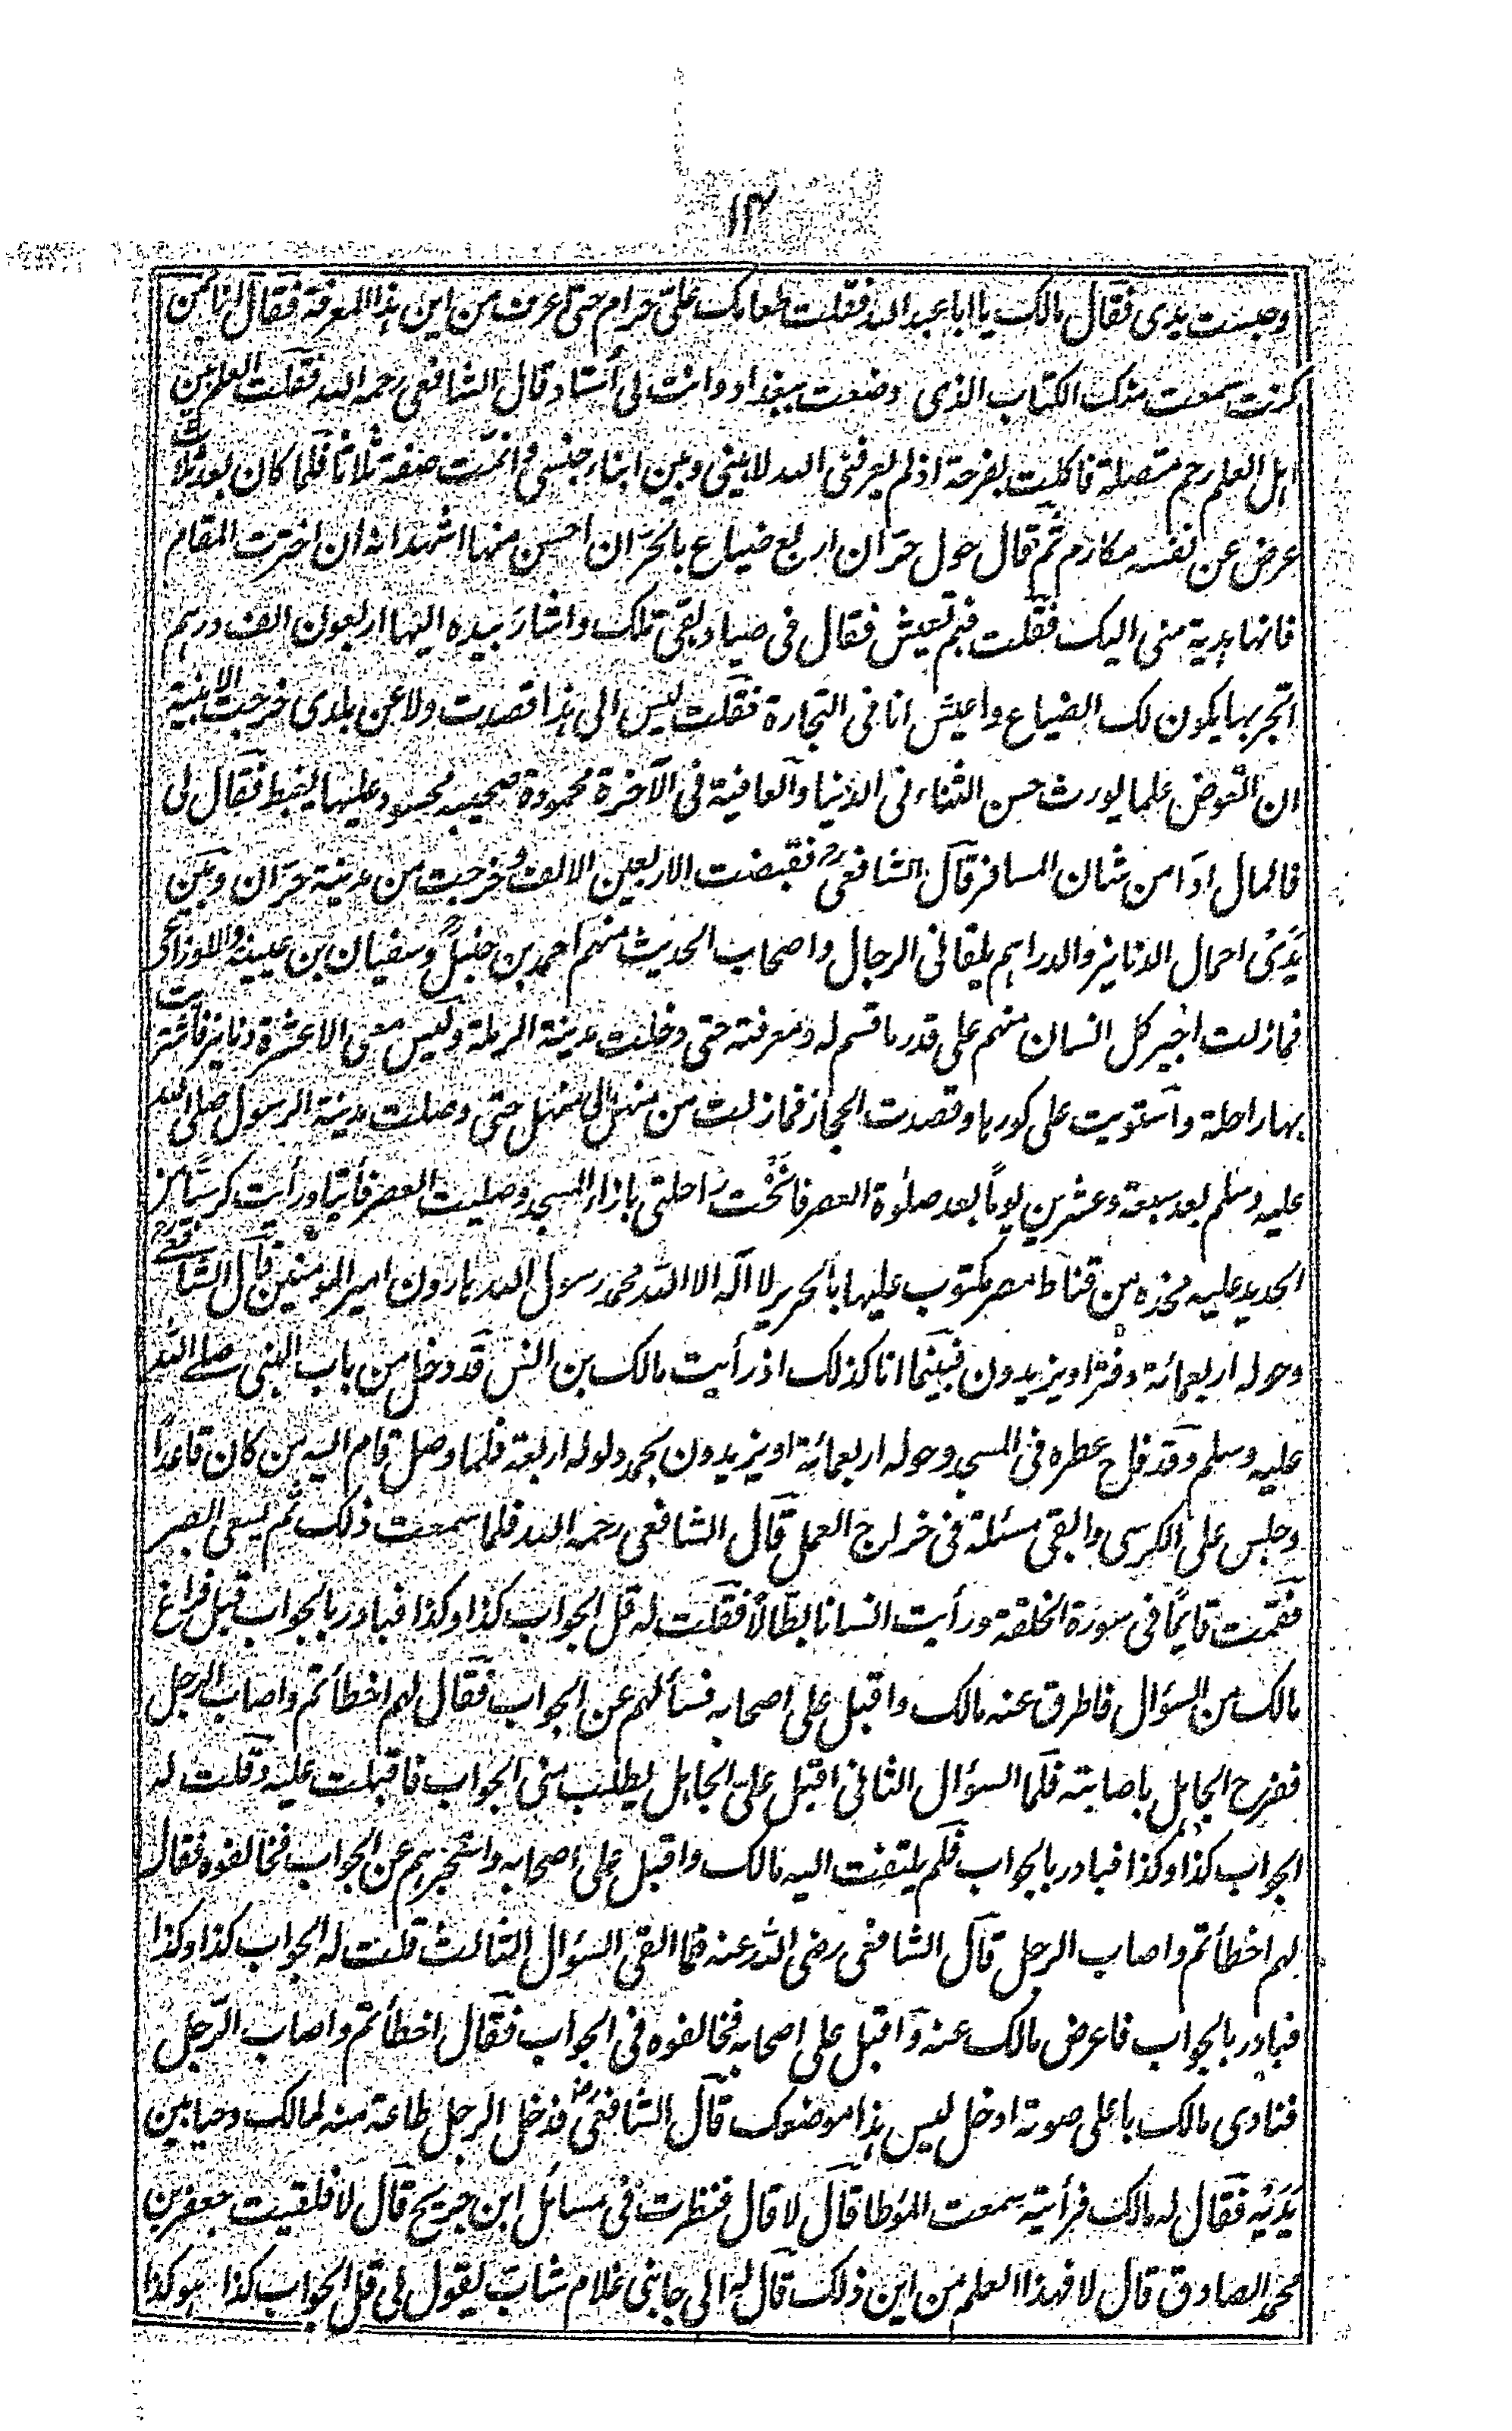 ١١٣
وحبست يدى فقال مالك يا ابا عبد الله فقلت طعامك علىّ حرام حتى اعرف من اين هذا المعرفة فقال انا ممن
كنت سمعت منك الكتاب الذى وضعت ببغداد وانت لى أستاد قال الشافعى رحمه الله فقلت العلم بين
اهل العلم رحم متصلة فاكلت بفرحة اذ لم يعرفنى الله لا بينى وبين ابناء جنسى فاتممت ضيفة ثلاثا فلما كان بعد ثلاث
عرض عن نفسه مكارم ثم قال حول حرّان اربع ضياع بالحرّان احسن منها اشهد انه ان اخترت المقام
فانها هدية منى اليك فقلت فبم تعيش فقال فى صناديقى تلك واشار بيده اليها اربعون الف درهم
اتّجر بها يكون لك الضياع واعيش انا فى التجارة فقلت ليس الى هذا قصدت ولا عن بلدى خرجت الا بنية
ان اتعوض علما يورث حسن الثناء فى الدنيا والعافية فى الآخرة محمودة صحيبه محسود عليها يغبط فقال لى
فالمال اذا من شان المسافر قال الشافعىؒ فقبضت الاربعين الالف وخرجت من مدينة حرّان وبين
يدىّ احمال الدنانير والدراهم يلقانى الرجال واصحاب الحديث منهم احمد بن حنبلؒ وسفيان بن عيينه والاوزاعى
فمازلت اجيز كل انسان منهم على قدر ما قسم له ومعرفته حتى دخلت مدينة الرملة وليس معى الا عشرة دنانير فاشتريت
بها راحلة واستويت على كورها وقصدت الحجاز فمازلت من منهل الى منهل حتى وصلت مدينة الرسول صلى الله
عليه وسلم بعد سبعة وعشرين يوماً بعد صلوٰة العصر فانخْت راحلتى بازاء المسجد وصليت العصر فأتيا ورأيت كرسيًا من
الحديد عليه مخذه من قناط مصر مكتوب عليها بالحرير لا اله الا الله محمد رسول الله هارون امير المؤمنين قال الشافعىؒ
وحوله اربعمائة دفتر او يزيدون فبينما انا كذلك اذ رأيت مالك بن انس قد دخل من باب النبى صلے الله
عليه وسلم وقد فاح عطره فى المسجد وحوله اربعمائة او يزيدون يحمد ذيوله اربعة فلما وصل قام اليه من كان قاعداً
وجلس على الكرسى والقى مسئلة فى خراج العمل قال الشافعى رحمه الله فلما سمعت ذلك ثم يسعى الصبر
فقمت قايمًا فى سورة الخلقة ورأيت انسانا بطّالاً فقلت له قل الجواب كذا وكذا فبادر بالجواب قبل فراغ
مالك من السؤال فاطرق عنه مالك واقبل على اصحابه فسألهم عن الجواب فقال لهم اخطأتم واصاب الرجل
ففرح الجاهل باصابته فلما السؤال الثانى اقبل علىّ الجاهل يطلب منى الجواب فاقبلت عليه وقلت له
الجواب كذا وكذا فبادر بالجواب فلم يلتفت اليه مالك واقبل على اصحابه واستخبرهم عن الجواب فخالفوه فقال
لهم اخطأتم واصاب الرجل قال الشافعى رضى الله عنه فلما القى السؤال الثالث قلت له الجواب كذا وكذا
فبادر بالجواب فاعرض مالك عنه واقبل على اصحابه فخالفوه فى الجواب فقال اخطأتم واصاب الرّجل
فنادى مالك باعلى صوته ادخل ليس هذا موضعك قال الشافعىؓ فدخل الرجل طاعة منه لمالك وحيا بين
يديه فقال له مالك فرأيته سمعت المؤطا قال لا قال فنظرت فى مسائل ابن جريح قال لا فلقيت جعفر بن
محمد الصادق قال لا فهذا العلم من اين ذلك قال له الى جانبى غلام شاب يقول لى قل الجواب كذا هو كذا